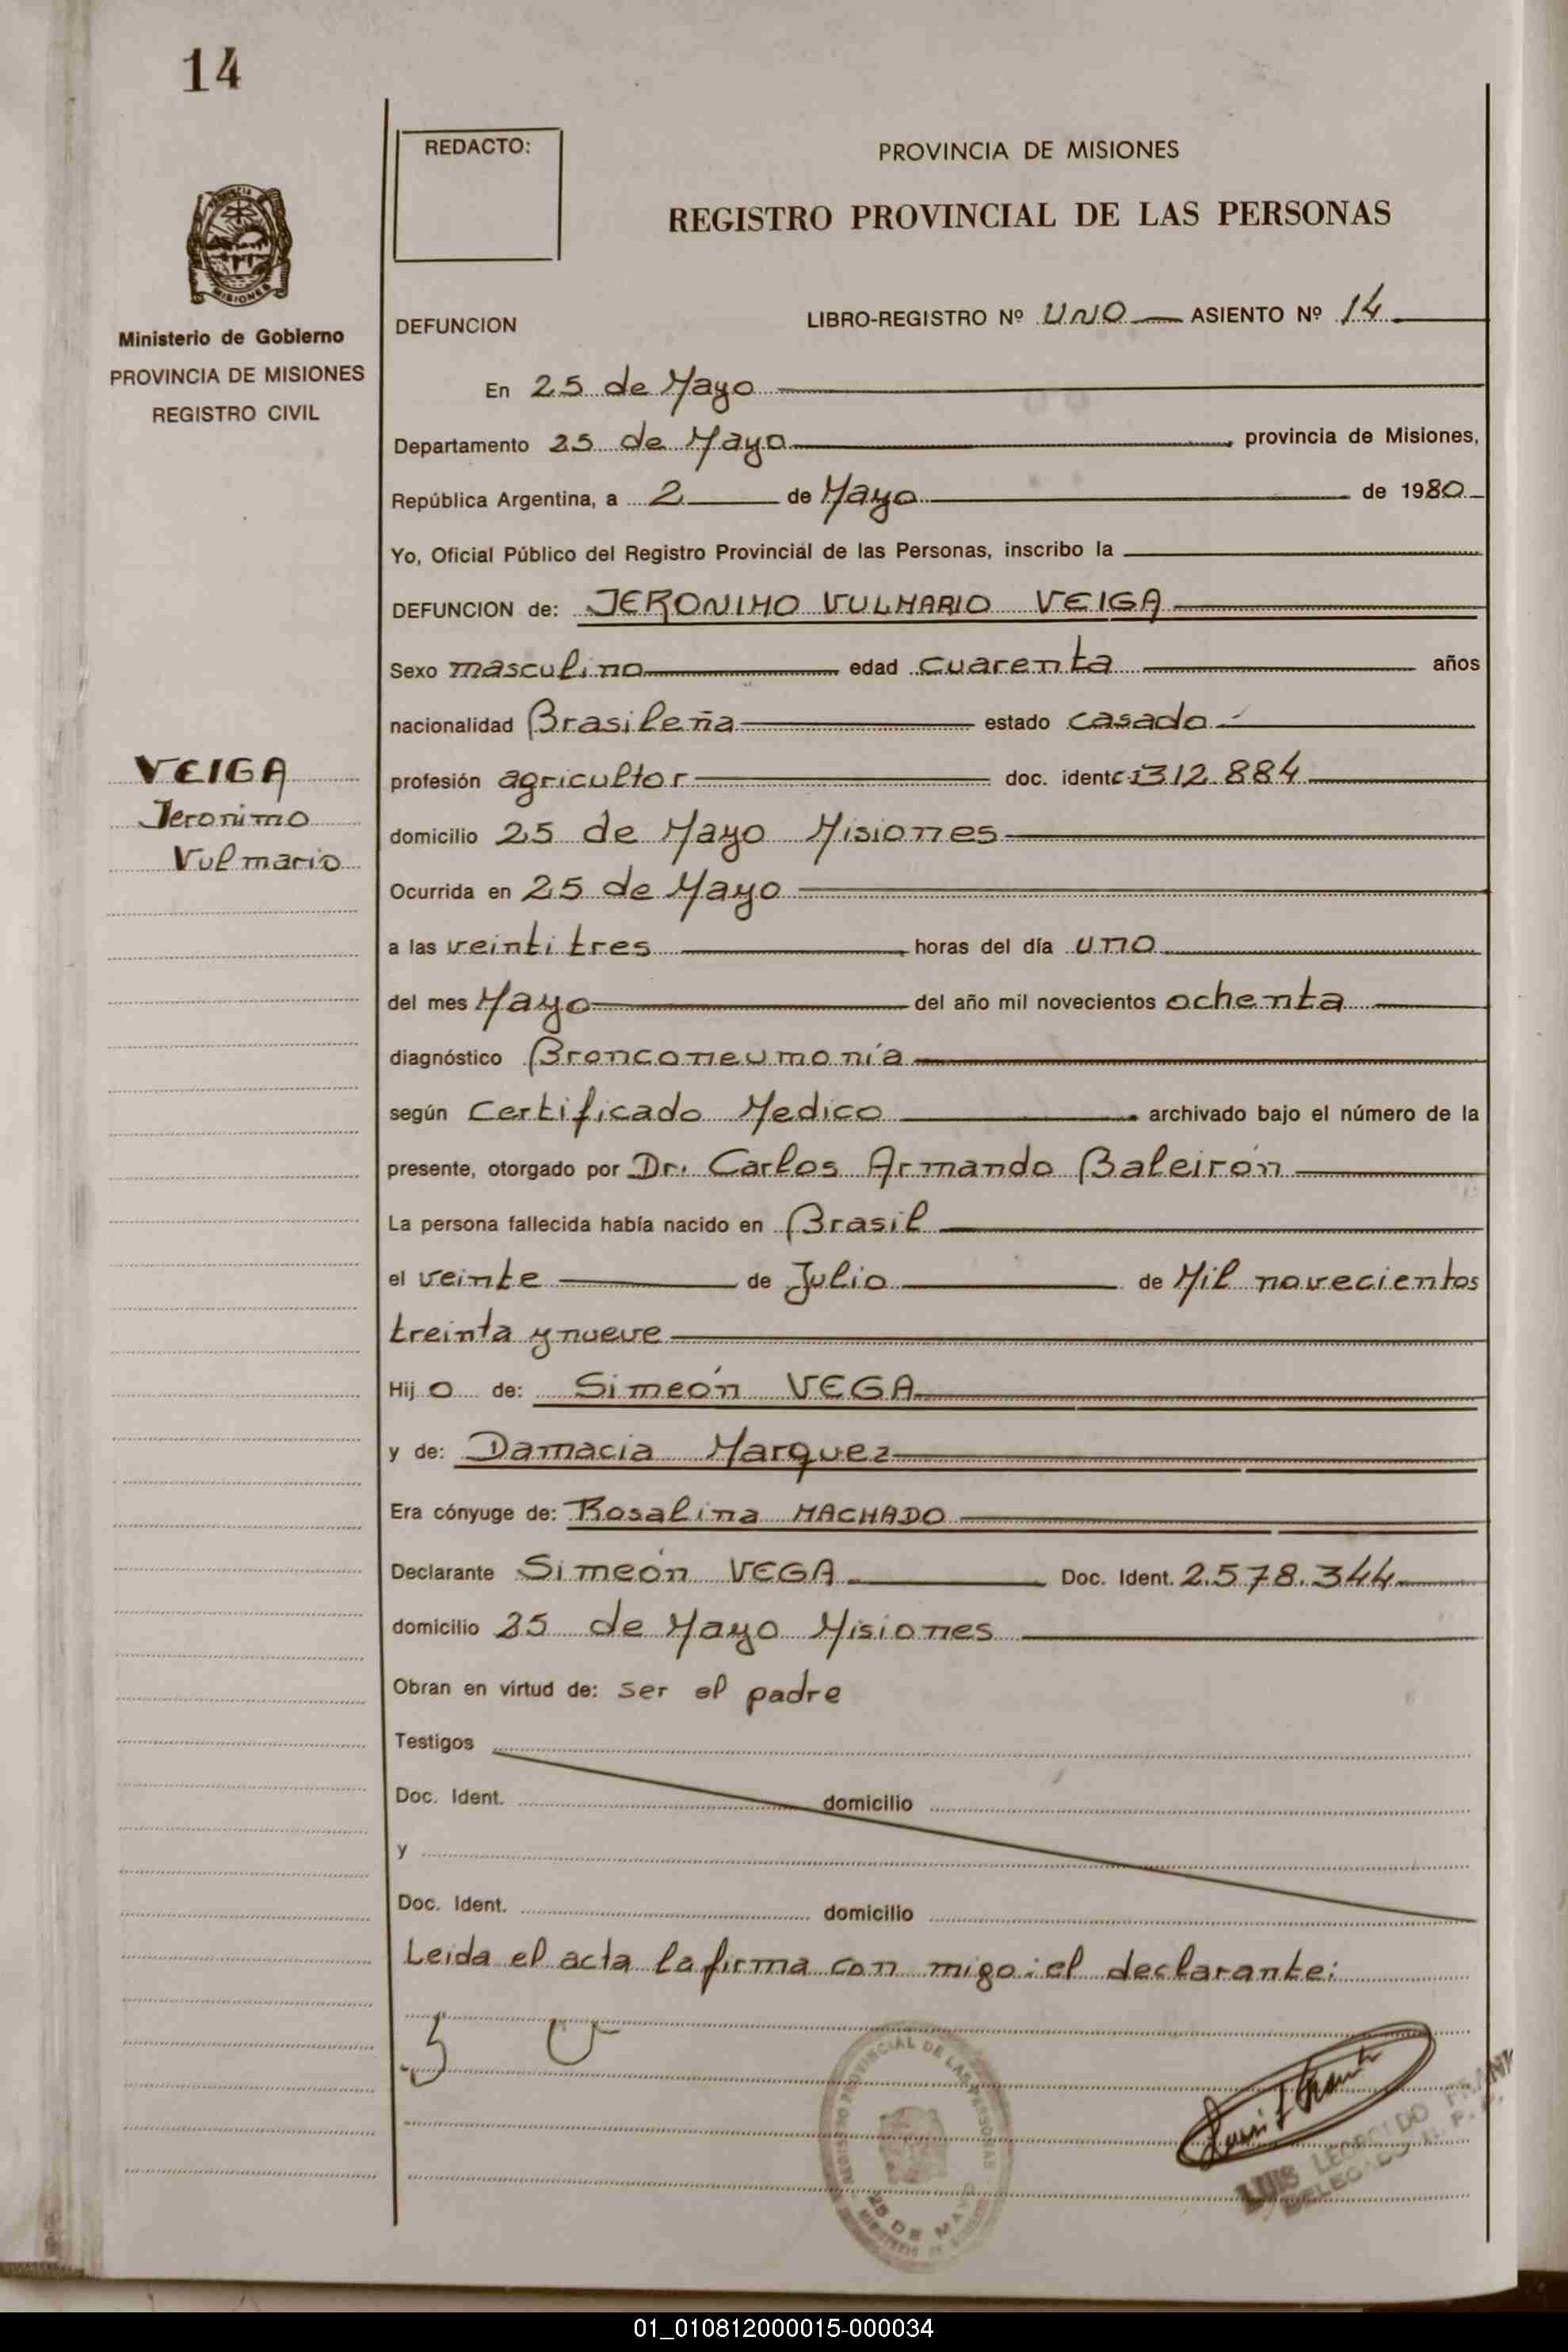 14
REDACTO:
PROVINCIA DE MISIONES
REGISTRO PROVINCIAL DE LAS PERSONAS
PROVINCIA
MISIONES
Ministerio de Gobierno
PROVINCIA DE MISIONES
REGISTRO CIVIL
DEFUNCION LIBRO-REGISTRO Nº UNO ASIENTO Nº 14
En 25 de Mayo
Departamento 25 de Mayo, provincia de Misiones,
República Argentina, a 2 de Mayo de 1980
Yo, Oficial Público del Registro Provincial de las Personas, inscribo la
DEFUNCION de: JERONIMO VULMARIO VEIGA
Sexo masculino edad cuarenta años
nacionalidad Brasileña estado casado
VEIGA
Jeronimo
Vulmario
profesión agricultor doc. ident CI 312.884
domicilio 25 de Mayo Misiones
Ocurrida en 25 de Mayo
a las veinti tres horas del día uno
del mes Mayo del año mil novecientos ochenta
diagnóstico Bronconeumonía
según Certificado Medico archivado bajo el número de la
presente, otorgado por Dr. Carlos Armando Baleirón
La persona fallecida había nacido en Brasil
el veinte de Julio de Mil novecientos
treinta y nueve
Hijo de: Simeón VEGA
y de: Damacia Marquez
Era cónyuge de: Rosalina MACHADO
Declarante Simeón VEGA Doc. Ident. 2.578.344
domicilio 25 de Mayo Misiones
Obran en virtud de: ser el padre
Testigos
Doc. Ident. domicilio
y
Doc. Ident. domicilio
Leida el acta la firma con migo: el declarante:
REGISTRO PROVINCIAL DE LAS PERSONAS
25 DE MAYO
LUIS LEOPOLDO
DELEGADO
01_010812000015-000034